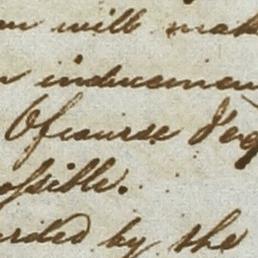 will mak
inducemen
Ofcourse
ossible.
arded by the